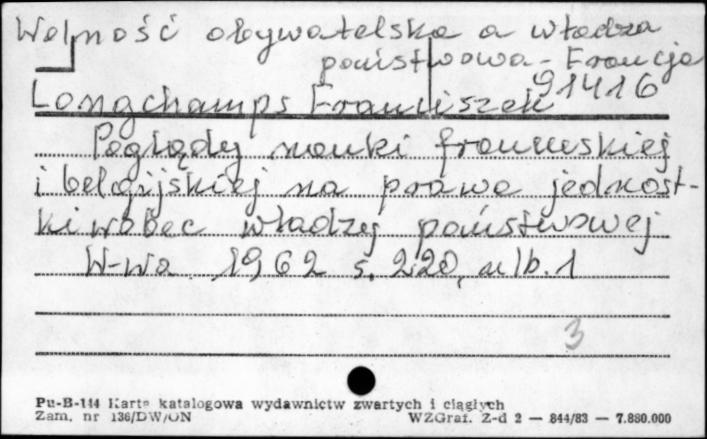 Wolność obywatelska a władza
państwowa - Francja
91416
Longchamps Franciszek
Poglądy nauki francuskiej
i belgijskiej na prawa jednost-
ki wobec władzy państwowej
W-wa 1962 s. 220, nlb. 1
3
Pu-B-144 Karta katalogowa wydawnictw zwartych i ciągłych
Zam. nr 136/DW/ON WZGraf. Z-d 2 — 844/83 — 7.880.000